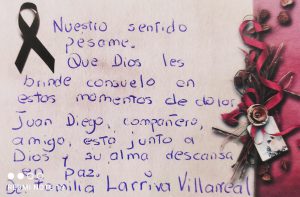 Nuestro sentido
pesame.
Que Dios les
brinde consuelo en
estos momentos de dolor.
Juan Diego, compañero,
amigo, esta junto a
Dios y su alma descansa
en Paz.
Familia Larriva Villarreal